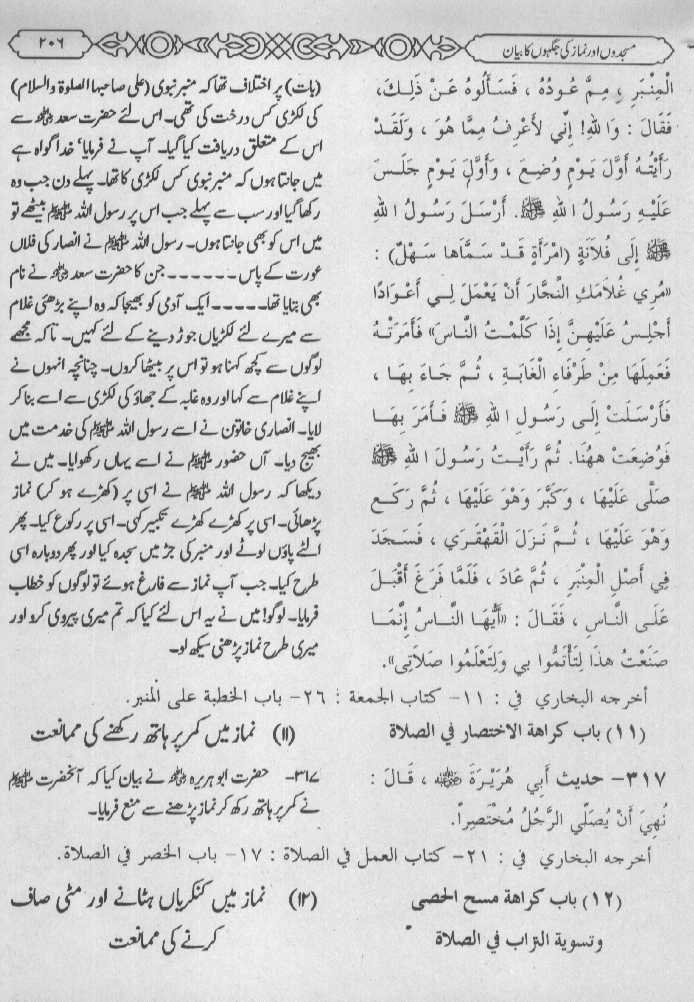 مسجدوں اور نماز کی جگہوں کا بیان
٢٠٦
الْمِنْبَرِ ، مِمَّ عُودُهُ ، فَسَأَلُوهُ عَنْ ذَلِكَ،
فَقَالَ : وَاللهِ! إِنِّي لأَعْرِفُ مِمَّا هُوَ ، وَلَقَدْ
رَأَيْتُهُ أَوَّلَ يَوْمٍ وُضِعَ ، وَأَوَّلَ يَوْمٍ جَلَسَ
عَلَيْهِ رَسُولُ اللهِ ﷺ. أَرْسَلَ رَسُولُ اللهِ
ﷺ إِلَى فُلاَنَةٍ (امْرَأَةٍ قَدْ سَمَّاهَا سَهْلٌ) :
«مُرِي غُلاَمَكِ النَّجَّارَ أَنْ يَعْمَلَ لِي أَعْوَادًا
أَجْلِسُ عَلَيْهِنَّ إِذَا كَلَّمْتُ النَّاسَ» فَأَمَرَتْهُ
فَعَمِلَهَا مِنْ طَرْفَاءِ الْغَابَةِ ، ثُمَّ جَاءَ بِهَا ،
فَأَرْسَلَتْ إِلَى رَسُولِ اللهِ ﷺ فَأَمَرَ بِهَا
فَوُضِعَتْ هٰهُنَا. ثُمَّ رَأَيْتُ رَسُولَ اللهِ ﷺ
صَلَّى عَلَيْهَا ، وَكَبَّرَ وَهْوَ عَلَيْهَا ، ثُمَّ رَكَعَ
وَهْوَ عَلَيْهَا ، ثُمَّ نَزَلَ الْقَهْقَرَي ، فَسَجَدَ
فِي أَصْلِ الْمِنْبَرِ ، ثُمَّ عَادَ ، فَلَمَّا فَرَغَ أَقْبَلَ
عَلَى النَّاسِ ، فَقَالَ : «أَيُّهَا النَّاسُ إِنَّمَا
صَنَعْتُ هٰذَا لِتَأْتَمُّوا بِي وَلِتَعْلَمُوا صَلاَتِي».
(بات) پر اختلاف تھا کہ منبر نبوی (علی صاحبہا الصلوة والسلام)
کی لکڑی کس درخت کی تھی۔ اس لئے حضرت سعد ؓ سے
اس کے متعلق دریافت کیا گیا۔ آپ نے فرمایا' خدا گواہ ہے
میں جانتا ہوں کہ منبر نبوی کس لکڑی کا تھا۔ پہلے دن جب وہ
رکھا گیا اور سب سے پہلے جب اس پر رسول اللہ ﷺ بیٹھے تو
میں اس کو بھی جانتا ہوں۔ رسول اللہ ﷺ نے انصار کی فلاں
عورت کے پاس۔۔۔۔۔۔ جن کا حضرت سعد ؓ نے نام
بھی بتایا تھا۔۔۔۔۔ ایک آدمی کو بھیجا کہ وہ اپنے بڑھئی غلام
سے میرے لئے لکڑیاں جوڑ دینے کے لئے کہیں۔ تاکہ مجھے
لوگوں سے کچھ کہنا ہو تو اس پر بیٹھا کروں۔ چنانچہ انہوں نے
اپنے غلام سے کہا اور وہ غابہ کے جھاؤ کی لکڑی سے اسے بنا کر
لایا۔ انصاری خاتون نے اسے رسول اللہ ﷺ کی خدمت میں
بھیج دیا۔ آں حضور ﷺ نے اسے یہاں رکھوایا۔ میں نے
دیکھا کہ رسول اللہ ﷺ نے اسی پر (کھڑے ہو کر) نماز
پڑھائی۔ اسی پر کھڑے کھڑے تکبیر کہی۔ اسی پر رکوع کیا۔ پھر
الٹے پاؤں لوٹے اور منبر کی جڑ میں سجدہ کیا اور پھر دوبارہ اسی
طرح کیا۔ جب آپ نماز سے فارغ ہوئے تو لوگوں کو خطاب
فرمایا۔ لوگو! میں نے یہ اس لئے کیا کہ تم میری پیروی کرو اور
میری طرح نماز پڑھنی سیکھ لو۔
أخرجه البخاري في : ١١– كتاب الجمعة : ٢٦– باب الخطبة على المنبر.
(١١) باب كراهة الاختصار في الصلاة
(۱۱) نماز میں کمر پر ہاتھ رکھنے کی ممانعت
٣١٧– حديث أَبِي هُرَيْرَةَ ؓ ، قَالَ :
نُهِيَ أَنْ يُصَلِّي الرَّجُلُ مُخْتَصِراً.
۳۱۷– حضرت ابو ہریرہ ؓ نے بیان کیا کہ آنحضرت ﷺ
نے کمر پر ہاتھ رکھ کر نماز پڑھنے سے منع فرمایا۔
أخرجه البخاري في : ٢١– كتاب العمل في الصلاة : ١٧– باب الخصر في الصلاة.
(١٢) باب كراهة مسح الحصى
وتسوية التراب في الصلاة
(۱۲) نماز میں کنکریاں ہٹانے اور مٹی صاف
کرنے کی ممانعت